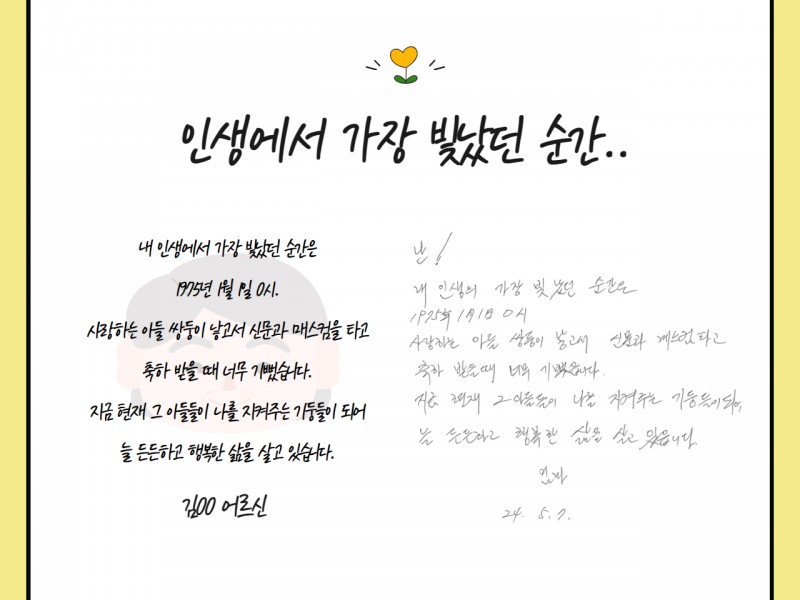 인생에서 가장 빛났던 순간..
내 인생에서 가장 빛났던 순간은
1975년 1월 1일 0시.
사랑하는 아들 쌍둥이 낳고서 신문과 매스컴을 타고
축하 받을 때 너무 기뻤습니다.
지금 현재 그 아들들이 나를 지켜주는 기둥들이 되어
늘 든든하고 행복한 삶을 살고 있습니다.
김OO 어르신
난!
내 인생의 가장 빛났던 순간은
1975年 1月1日 0시
사랑하는 아들 쌍둥이 낳고서 신문과 타고
축하 받을때 너무 기뻤습니다.
지금 현재 그 아들들이 나를 지켜주는 기둥들이되어,
늘 든든하고 행복한 삶을 살고 있습니다.
엄마
24. 5. 7.